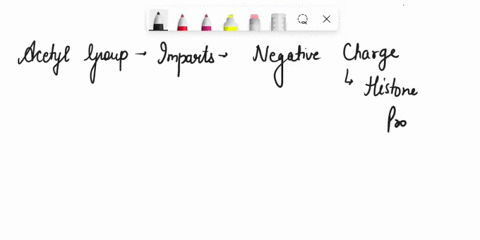 Acetyl Group → Imparts → Negative Charge
↳ Histone
Pro